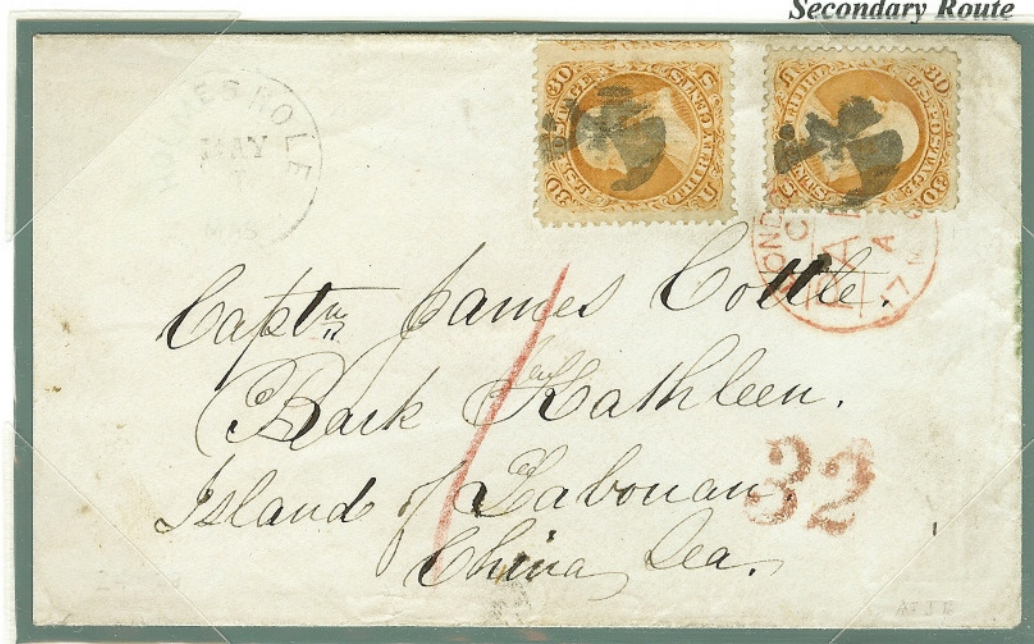 Secondary Route
HOLMES HOLE
MAY
MAS
U.S. POSTAGE
30 30
THIRTY CENTS
U S
U.S. POSTAGE
30 30
THIRTY CENTS
U S
LONDON
PAID
Captn James Cottle.
Bark Kathleen.
Island of Labouan.
China Sea.
32